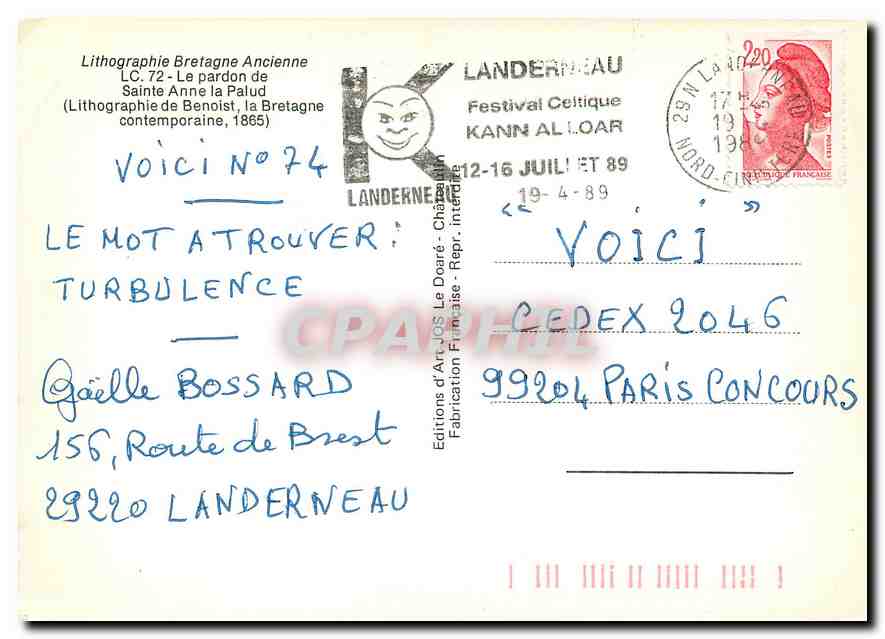 Lithographie Bretagne Ancienne
LC. 72 - Le pardon de
Sainte Anne la Palud
(Lithographie de Benoist, la Bretagne
contemporaine, 1865)
VOICI N° 74
LE MOT A TROUVER :
TURBULENCE
Gaëlle BOSSARD
156, Route de Brest
29220 LANDERNEAU
K
LANDERNEAU
LANDERNEAU
Festival Celtique
KANN AL LOAR
12-16 JUILLET 89
19-4-89
29 N LANDERNEAU
17H
19
198
NORD-FINISTERE
2,20
POSTES
REPUBLIQUE FRANÇAISE
Editions d'Art JOS Le Doaré - Châteaulin
Fabrication Française - Repr. interdite
"VOICI"
CEDEX 2046
99204 PARIS CONCOURS
CPAPHIL